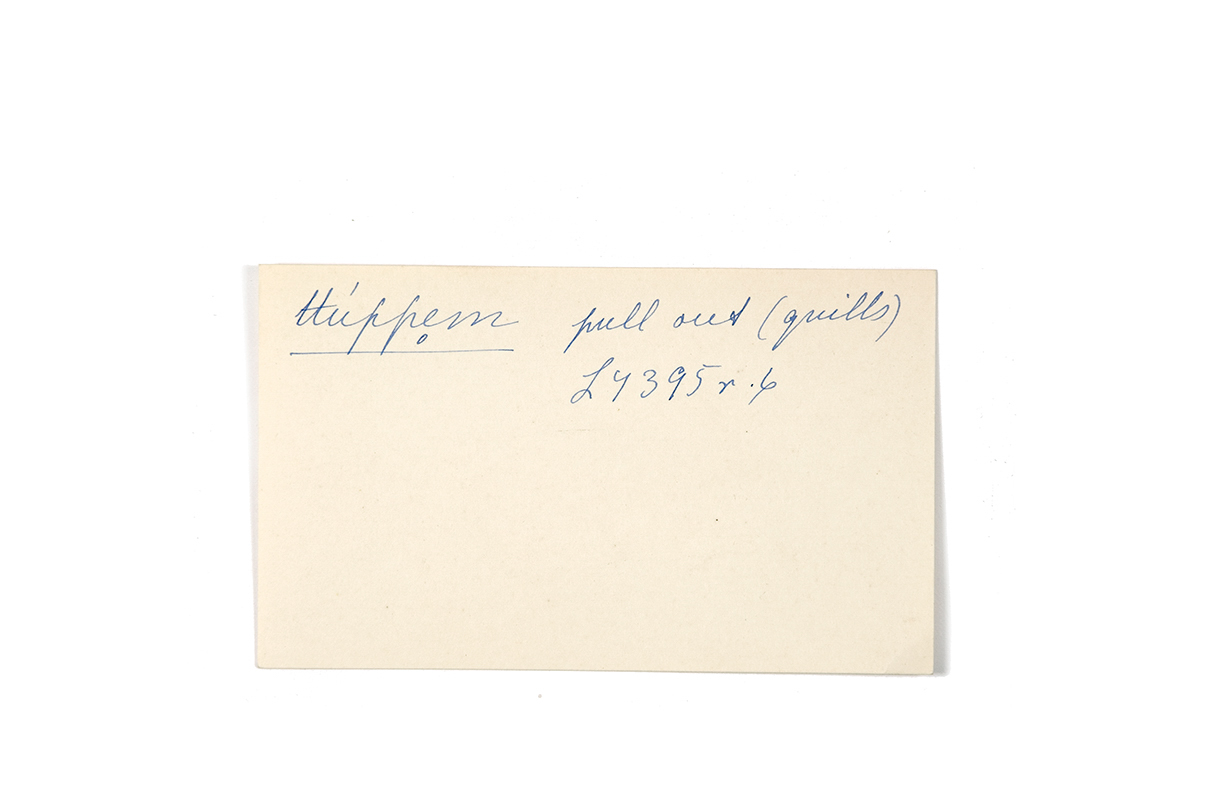 ttúppe̥m pull out (quills)
L4395r.6